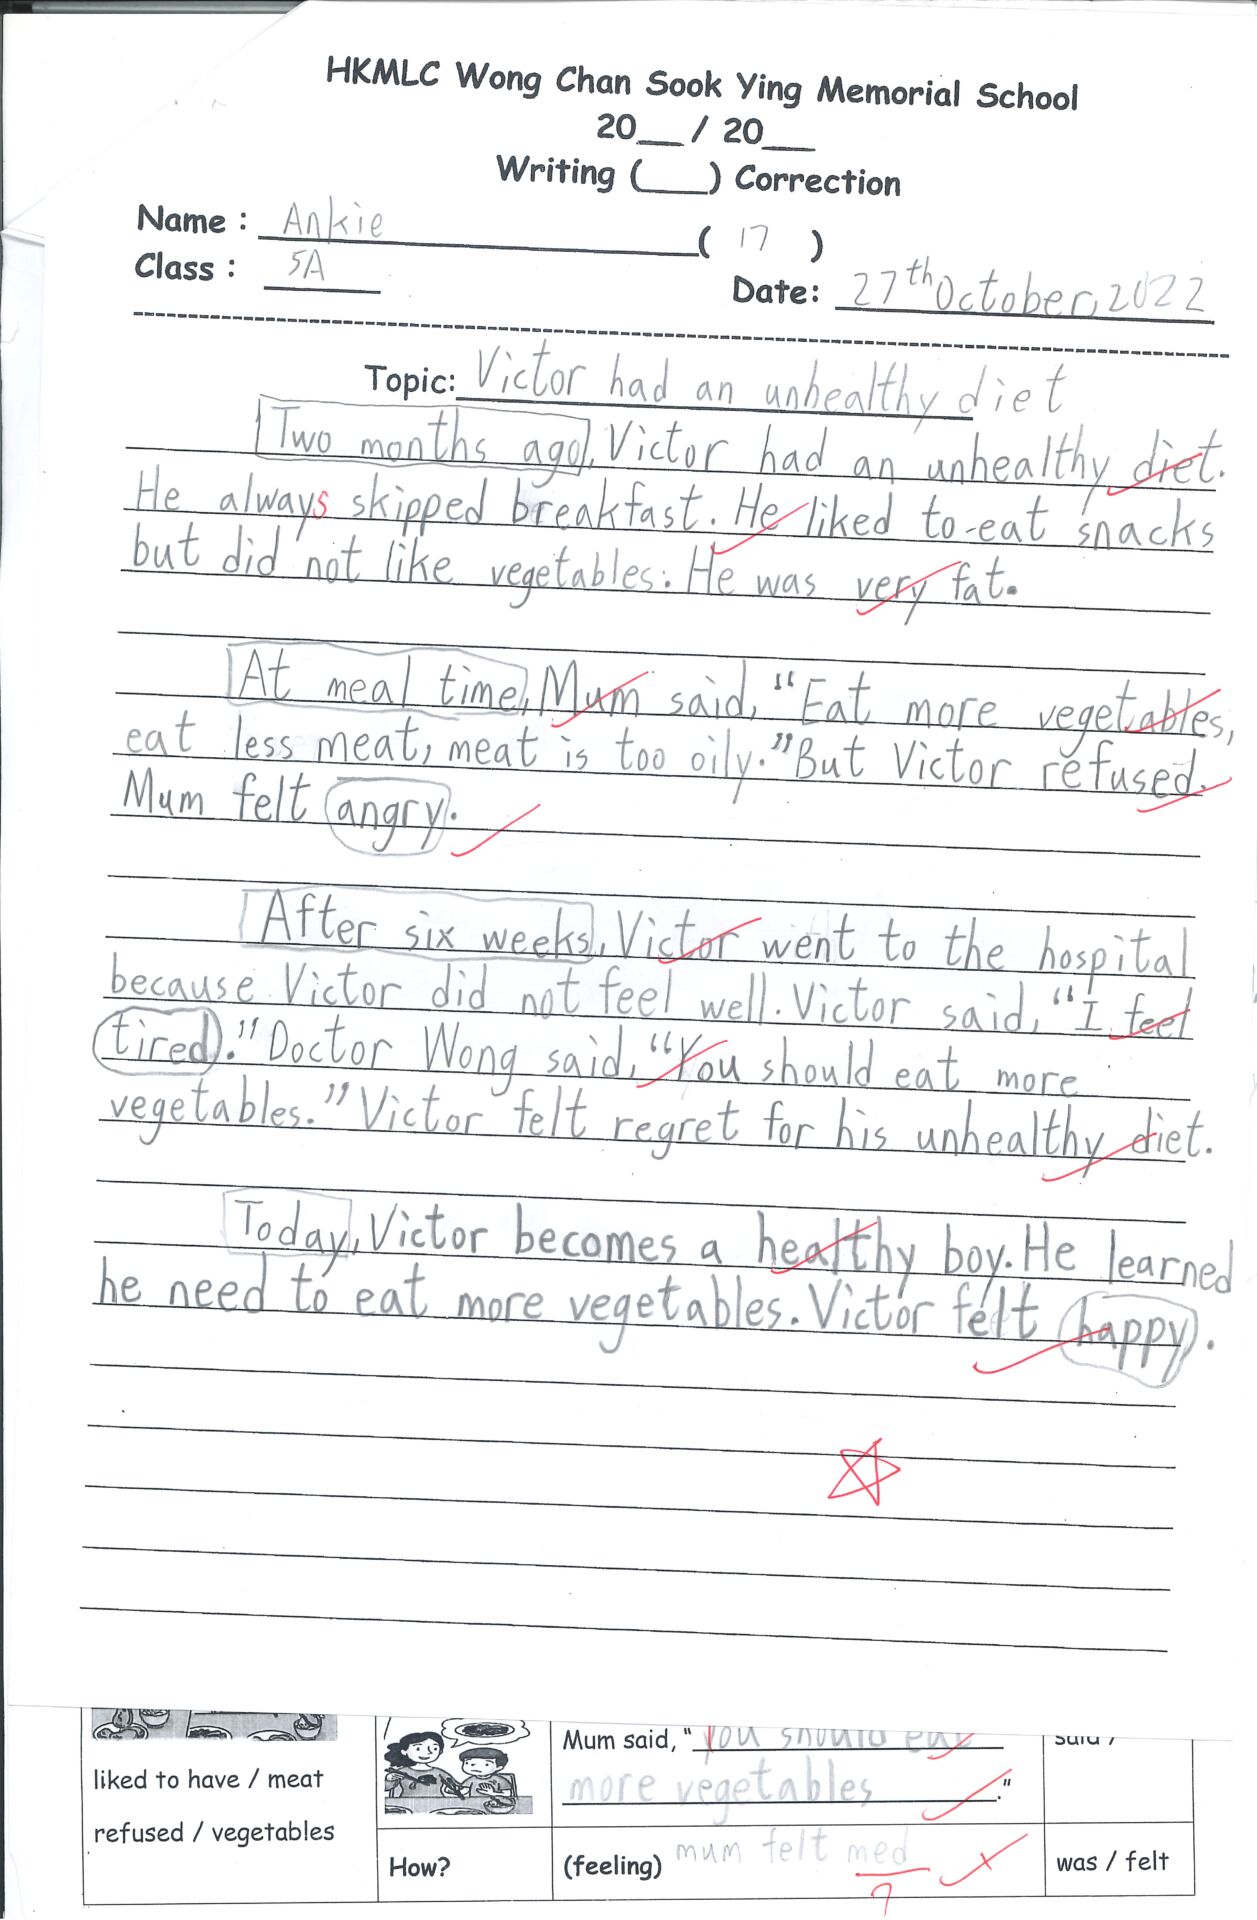 HKMLC Wong Chan Sook Ying Memorial School
20__ / 20__
Writing (___) Correction
Name : Ankie ( 17 )
Class : 5A
Date: 27th October, 2022
Topic: Victor had an unhealthy diet
Two months ago, Victor had an unhealthy diet.
He always skipped breakfast. He liked to eat snacks
but did not like vegetables. He was very fat.
At meal time, Mum said, "Eat more vegetables,
eat less meat, meat is too oily." But Victor refused.
Mum felt angry.
After six weeks, Victor went to the hospital
because Victor did not feel well. Victor said, "I feel
tired." Doctor Wong said, "You should eat more
vegetables." Victor felt regret for his unhealthy diet.
Today, Victor becomes a healthy boy. He learned
he need to eat more vegetables. Victor felt happy.
Mum said, "You should eat
more vegetables."
said /
liked to have / meat
refused / vegetables
How?
(feeling) mum felt med
?
was / felt